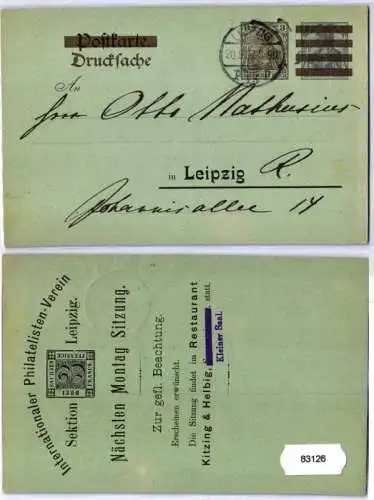 Postkarte
Drucksache
LEIPZIG
20.
An
Herrn Otto Nathusius
in Leipzig R.
Johannisallee 14
Internationaler Philatelisten-Verein
Sektion Leipzig.
DREI
PFENNIGE
3
Nächsten Montag Sitzung.
Zur gefl. Beachtung.
Erscheinen erwünscht.
Die Sitzung findet im Restaurant
Kitzing & Helbig, statt.
Kleiner Saal.
83126